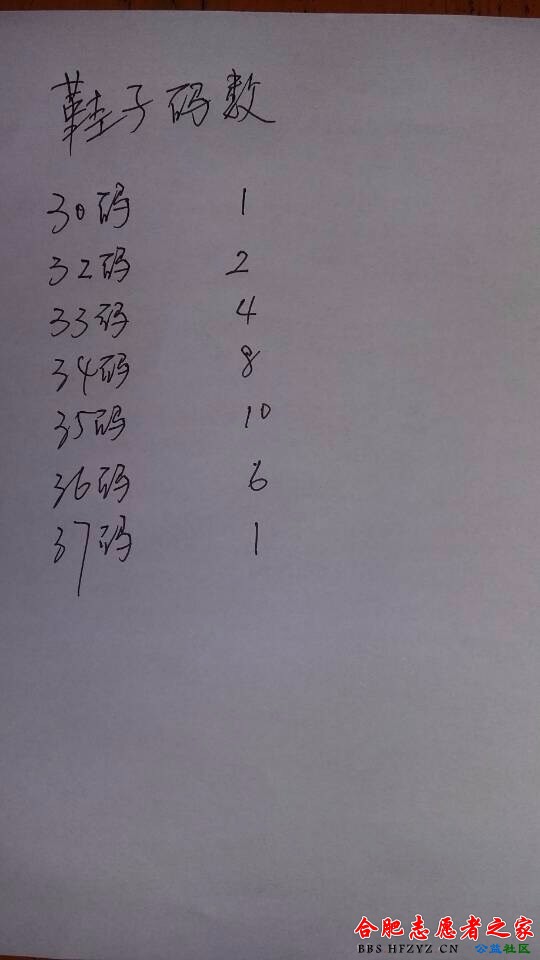 鞋子码数
30码 1
32码 2
33码 4
34码 8
35码 10
36码 6
37码 1
合肥志愿者之家
BBS HFZYZ CN 公益社区